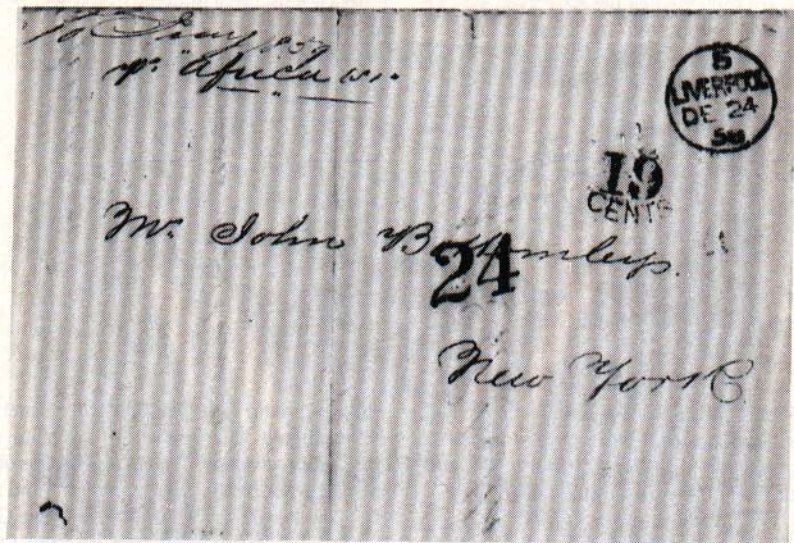 pr. Africa
5
LIVERPOOL
DE 24
19
CENTS
Mr. John
24
New York